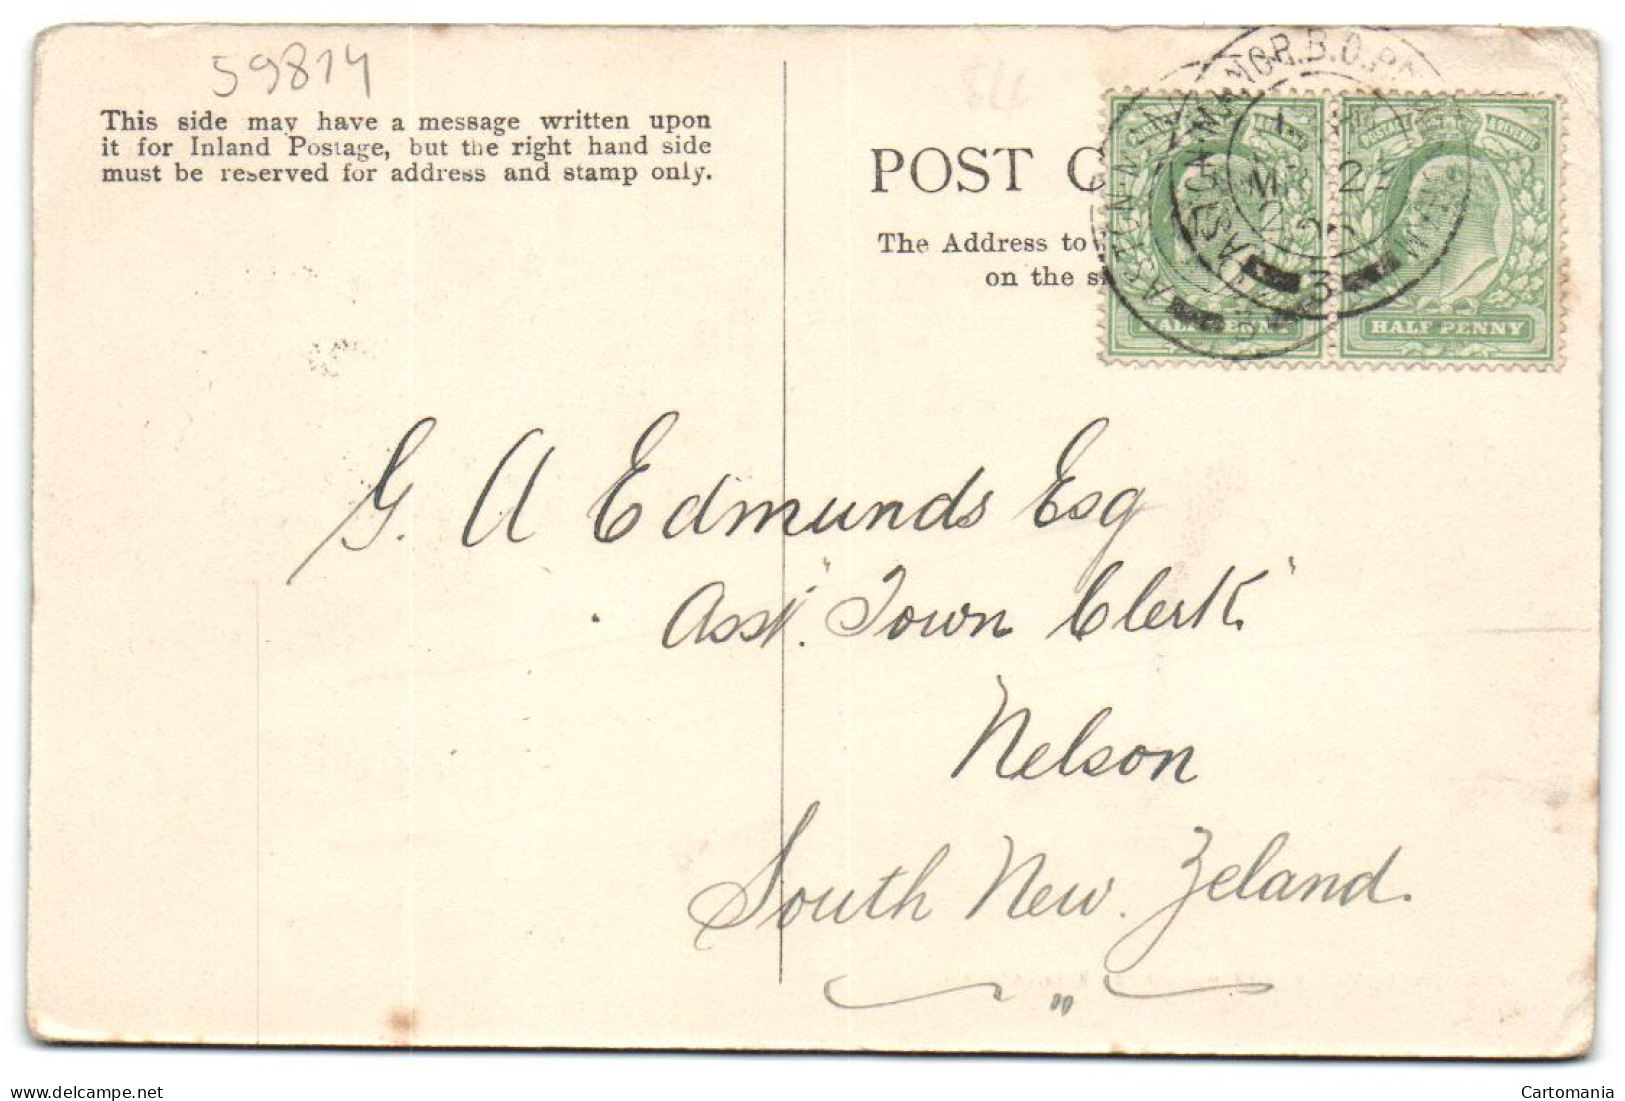 59814
This side may have a message written upon
it for Inland Postage, but the right hand side
must be reserved for address and stamp only.
POST C
The Address to
on the s
ASTON MANOR.B.O.
HALF PENNY
HALF PENNY
G. A Edmunds Esq
Asst. "Town Clerk"
Nelson
South New. Zeland.
delcampe.net
Cartomania